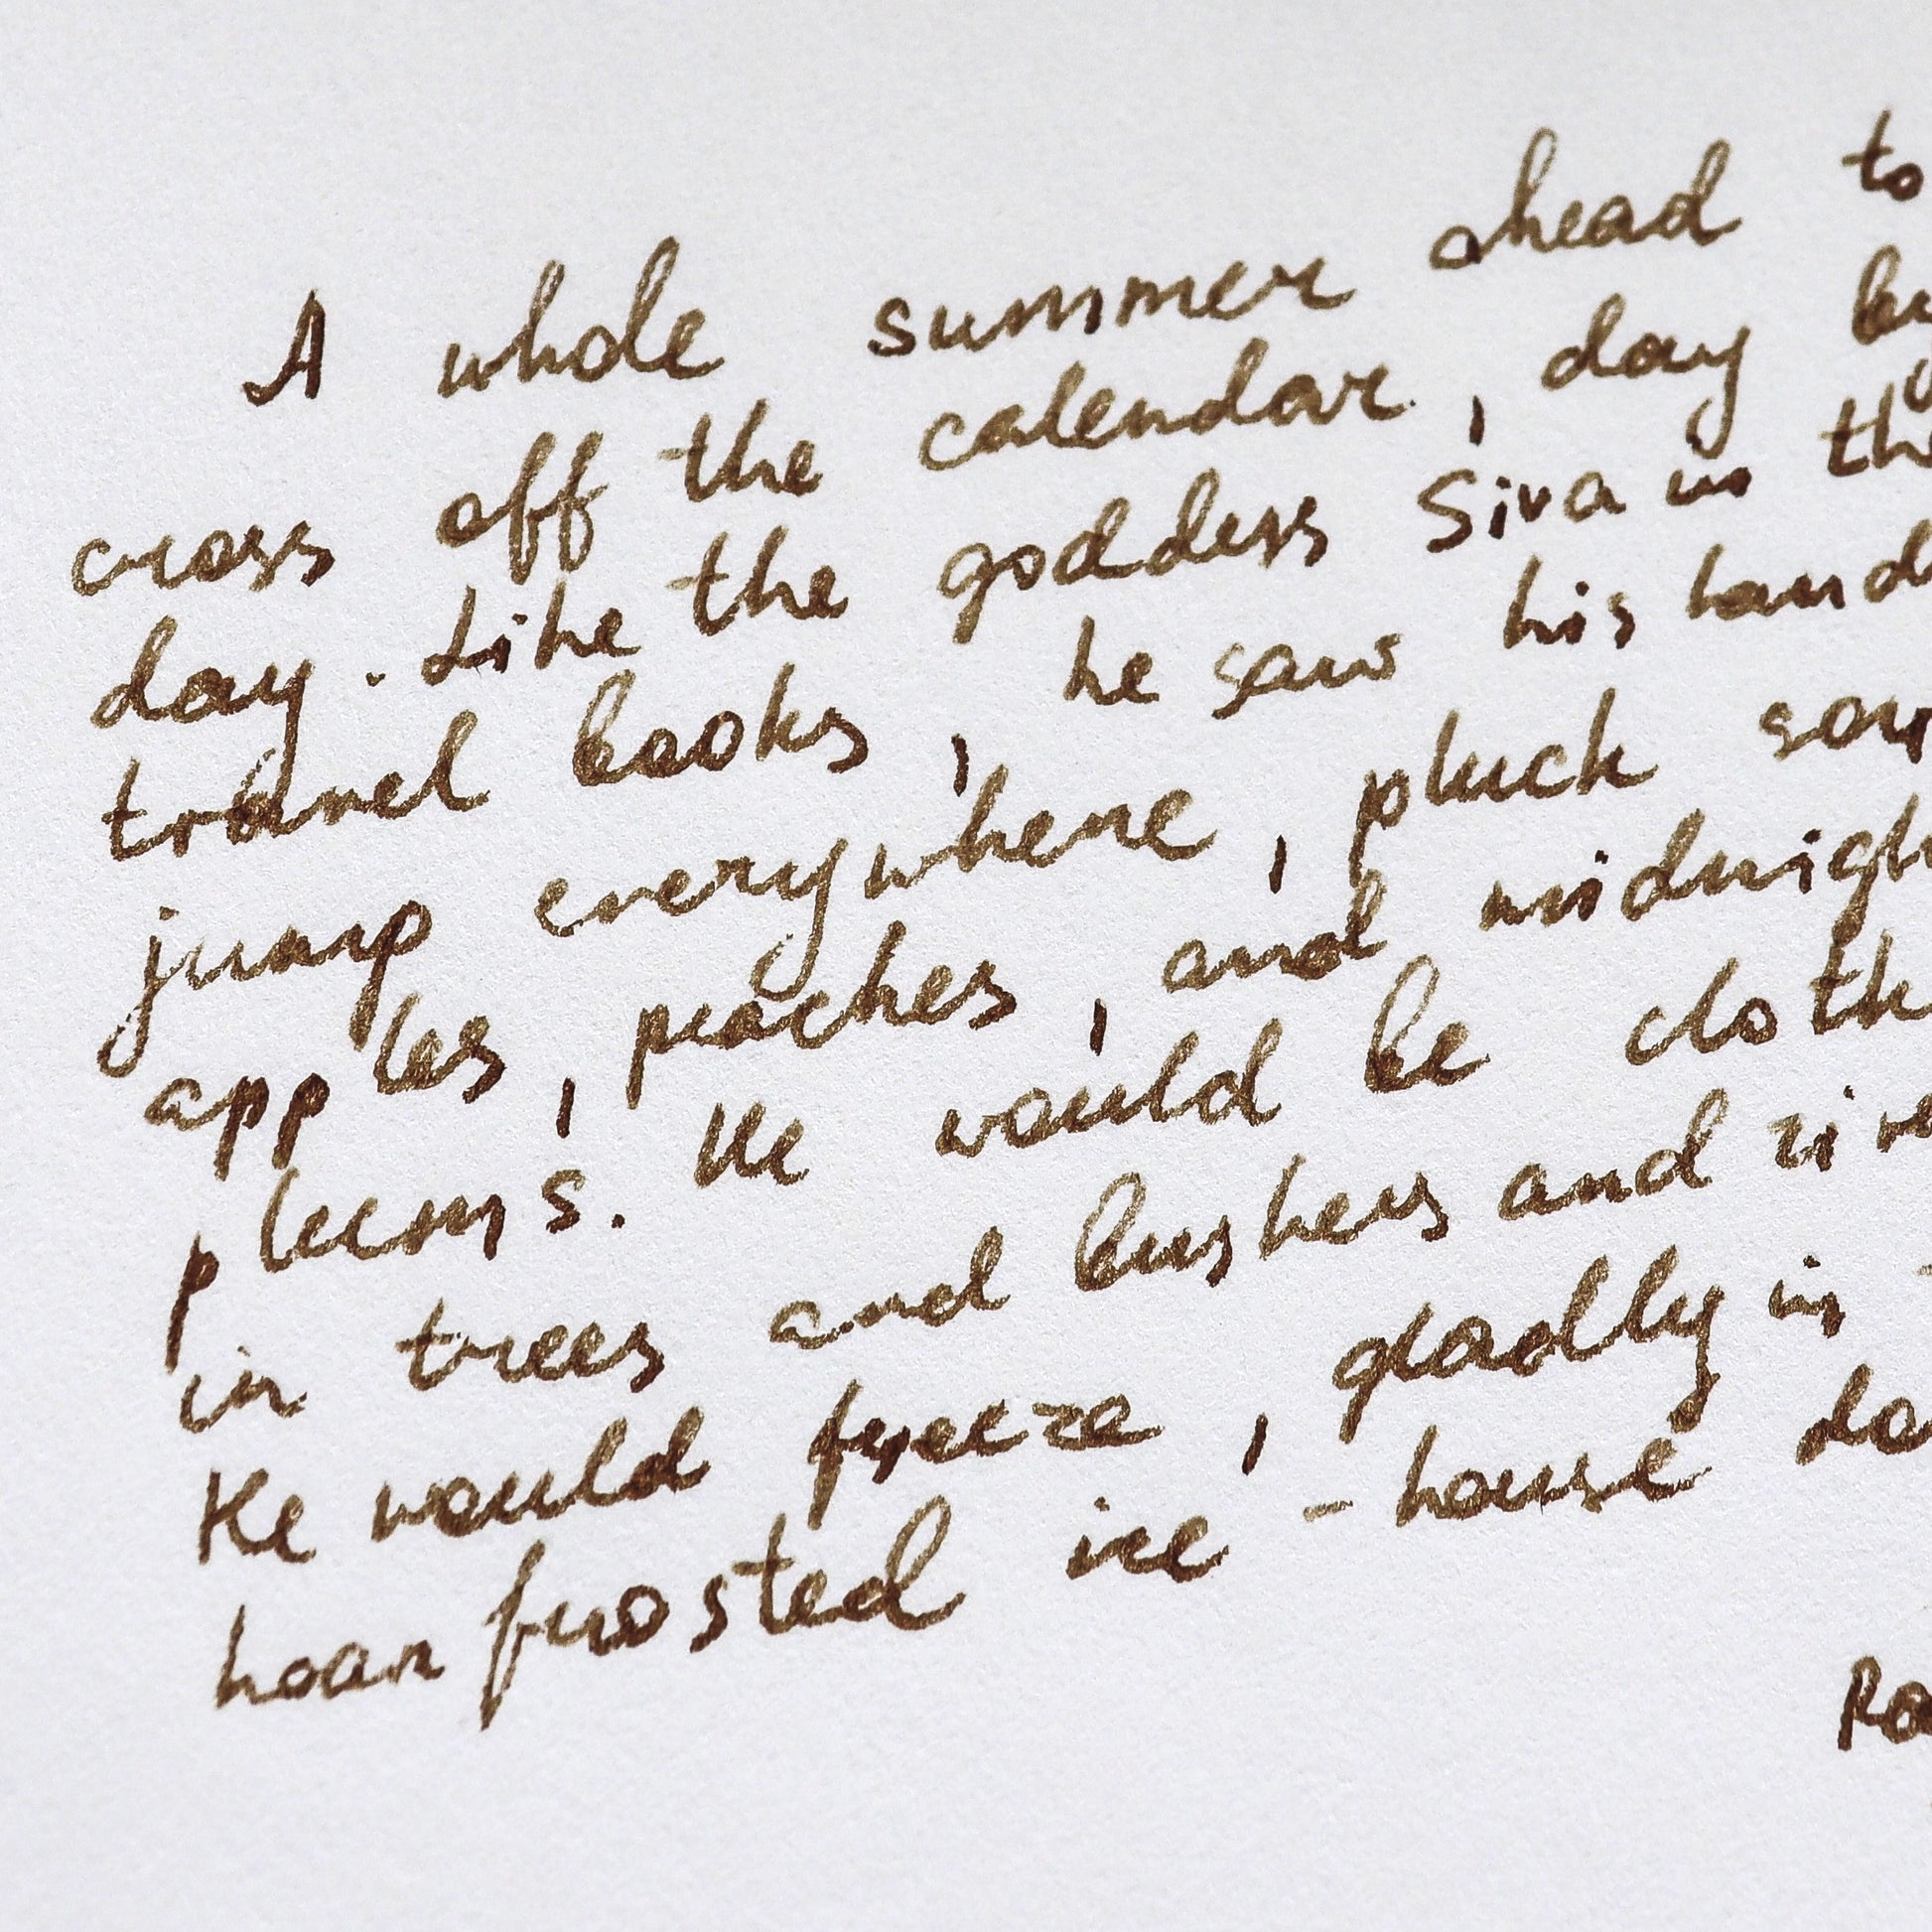 A whole summer ahead to
cross off the calendar, day by
day. Like the goddess Siva in the
travel books, he saw his hands
jump everywhere, pluck sour
apples, peaches, and midnigh
plums. He would be cloth
in trees and bushes and rive
He would freeze, gladly in
hoarfrosted ice-house do